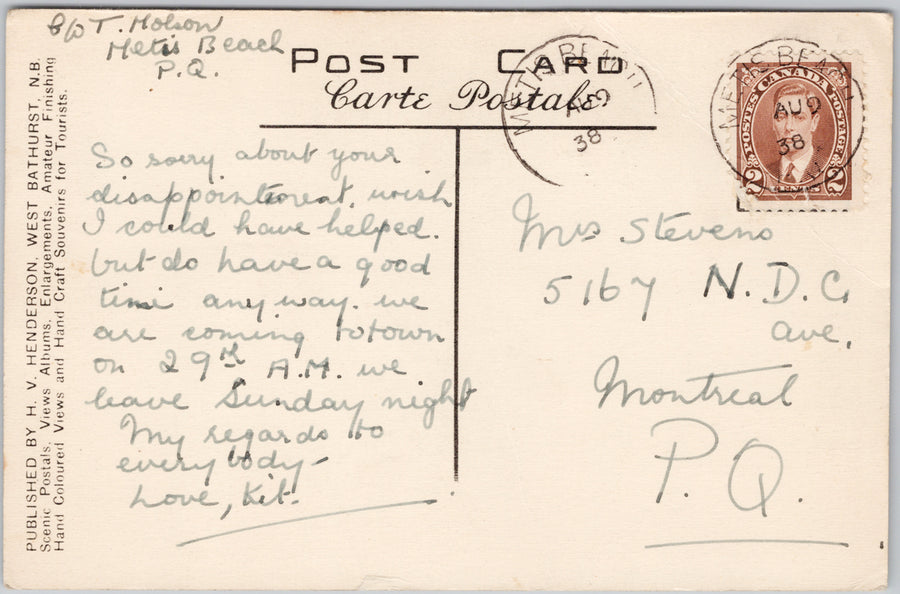 c/o T. Molson
Metis Beach
P.Q.
POST CARD
Carte Postale
PUBLISHED BY H. V. HENDERSON, WEST BATHURST, N.B.
Scenic Postals, Views Albums, Enlargements, Amateur Finishing
Hand Coloured Views and Hand Craft Souvenirs for Tourists.
METIS BEACH
AU 9
38
METIS BEACH
AU 9
38
POSTES CANADA POSTAGE
2 CENTS 2
So sorry about your
disappointment, wish
I could have helped.
but do have a good
time any way. we
are coming to town
on 29th A.M. we
leave Sunday night
My regards to
everybody –
Love, Kit.
Mrs Stevens
5167 N.D.G.
ave,
Montreal
P.Q.